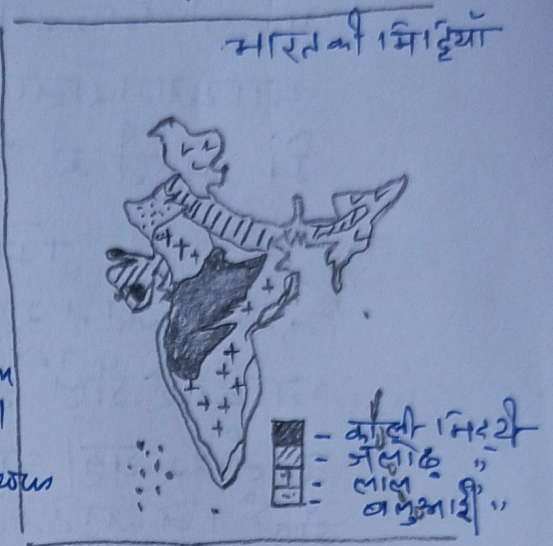 भारत की मिट्टियाँ
- काली मिट्टी
- जलोढ़ "
- लाल "
- बलुआरी "